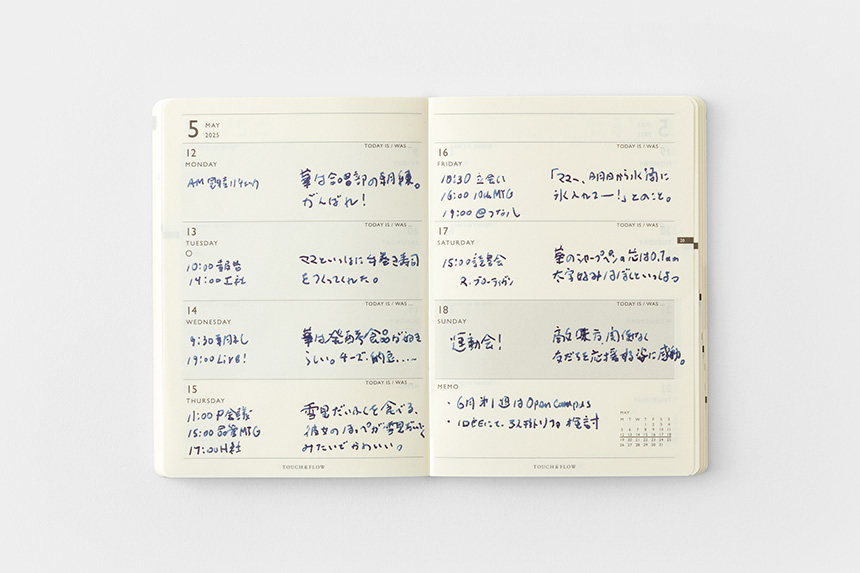 5 MAY
2025
TODAY IS / WAS ...
12
MONDAY
AM
華は合唱部の朝練。
がんばれ!
TODAY IS / WAS ...
13
TUESDAY
10:00 報告
14:00 工社
ママといっしょに手巻き寿司
をつくってくれた。
TODAY IS / WAS ...
14
WEDNESDAY
9:30
19:00 Live!
華は発酵食品が好き
らしい。チーズ、納豆.....
TODAY IS / WAS ...
15
THURSDAY
11:00 P会議
15:00 品管MTG
17:00 H社
雪見だいふくを食べる、
彼女のほっぺが雪見だいふく
みたいでかわいい。
TOUCH & FLOW
TODAY IS / WAS ...
16
FRIDAY
10:30 立会い
16:00 MTG
19:00 @つなハし
「ママー、明日から水筒に
氷入れてー!」とのこと。
TODAY IS / WAS ...
17
SATURDAY
15:00 読書会
R.ブローティガン
華のシャーペンの芯は0.7mm
太字好みはぼくといっしょ
TODAY IS / WAS ...
18
SUNDAY
運動会!
敵味方関係なく
友だちを応援する姿に感動。
MEMO
・6月第1週はOpen Campus
・IDEEにて、3人掛けソファ検討
MAY
M T W T F S S
1 2 3 4
5 6 7 8 9 10 11
12 13 14 15 16 17 18
19 20 21 22 23 24 25
26 27 28 29 30 31
TOUCH & FLOW
20